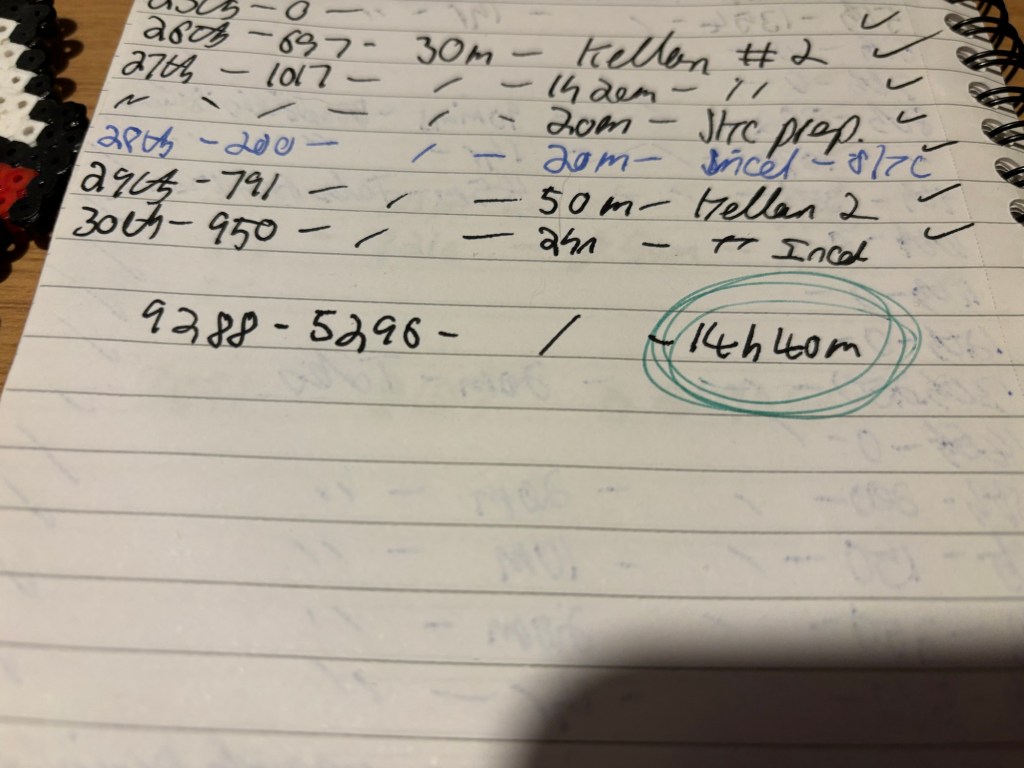 25th - 0 -
26th - 697 - 30m - Kellan #2 ✓
27th - 1017 - / - 1h 20m - " ✓
" - / - 20m - prep. ✓
28th - 200 - / - 20m - Incel -
29th - 791 - / - 50m - Kellan 2 ✓
30th - 950 - / - - Incel ✓
9288 - 5296 - / - 14h 40m